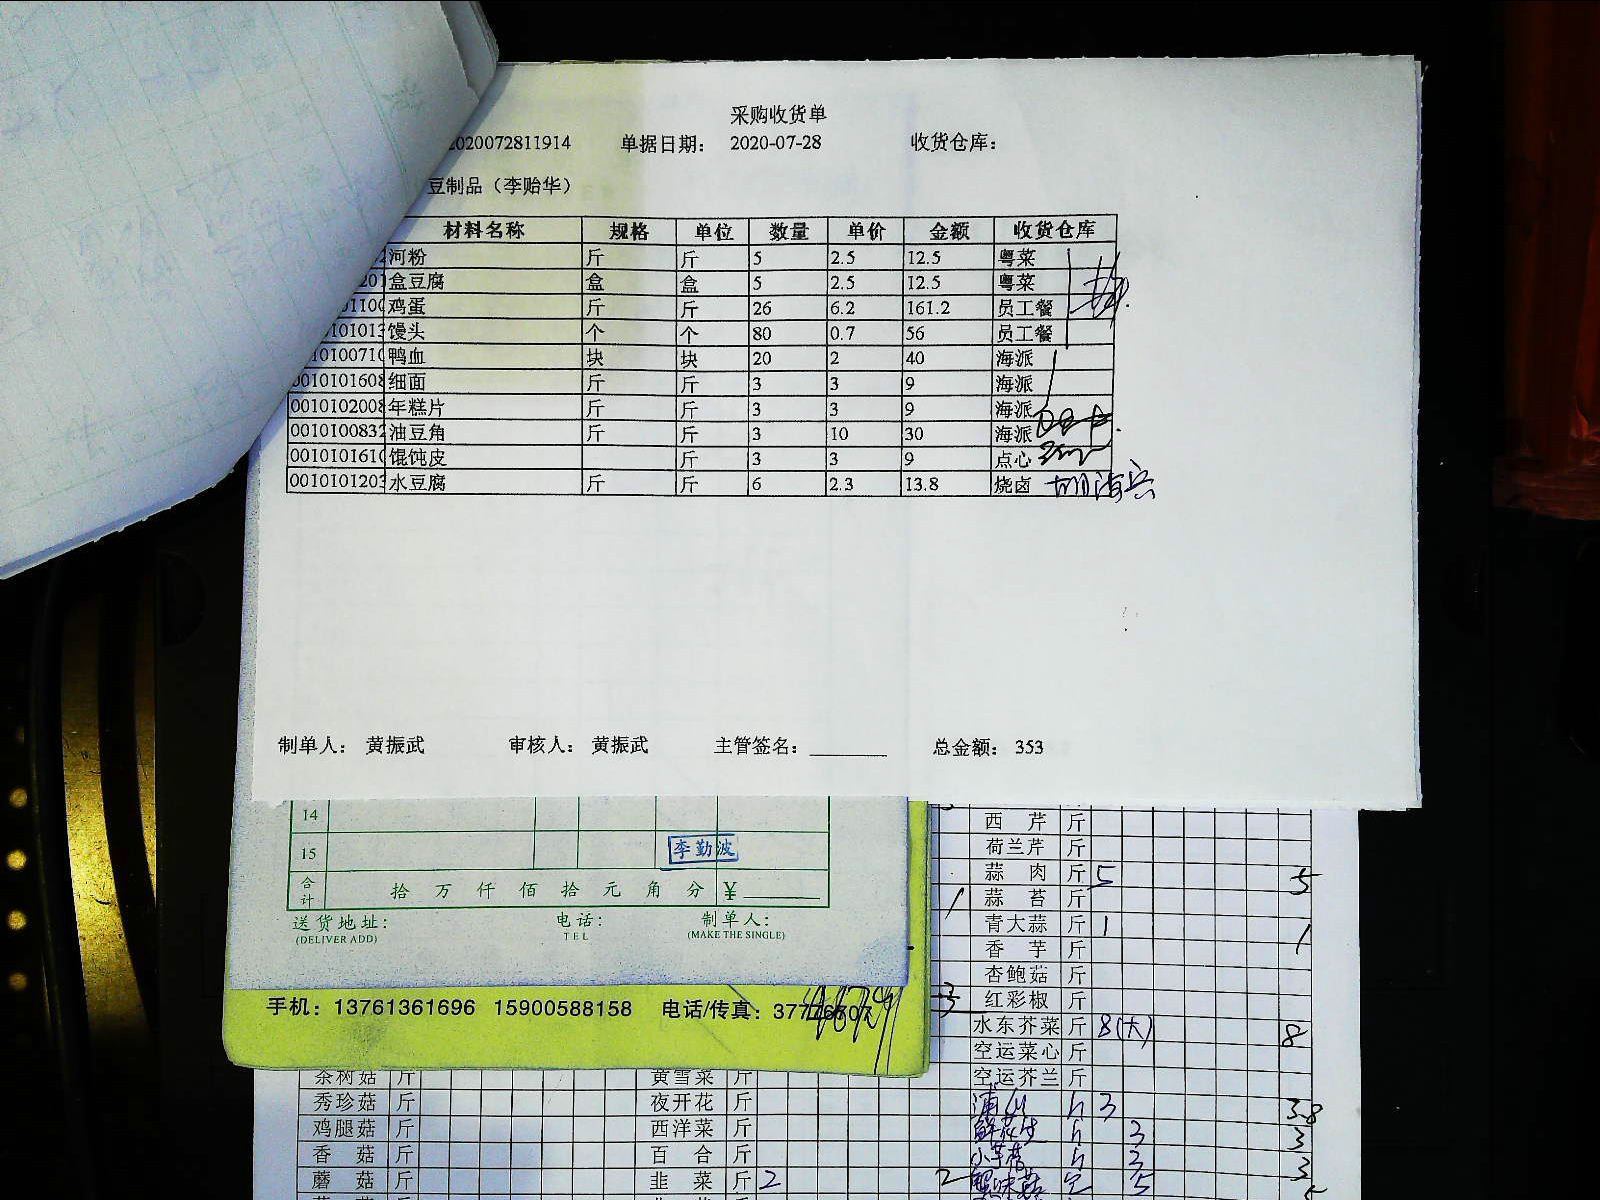 采购收货单
2020072811914 单据日期： 2020-07-28 收货仓库：
豆制品（李贻华）
材料名称 规格 单位 数量 单价 金额 收货仓库
河粉 斤 斤 5 2.5 12.5 粤菜
盒豆腐 盒 盒 5 2.5 12.5 粤菜
鸡蛋 斤 斤 26 6.2 161.2 员工餐
101013 馒头 个 个 80 0.7 56 员工餐
10100710 鸭血 块 块 20 2 40 海派
0010101608 细面 斤 斤 3 3 9 海派
0010102008 年糕片 斤 斤 3 3 9 海派
0010100832 油豆角 斤 斤 3 10 30 海派
0010101610 馄饨皮 斤 3 3 9 点心
0010101203 水豆腐 斤 斤 6 2.3 13.8 烧卤 胡海兵
制单人： 黄振武 审核人： 黄振武 主管签名： 总金额： 353
14
15 李勤波
合计 拾 万 仟 佰 拾 元 角 分 ¥
送货地址： 电话： 制单人：
(DELIVER ADD) TEL (MAKE THE SINGLE)
手机：13761361696 15900588158 电话/传真：
西芹 斤
荷兰芹 斤
蒜肉 斤 5 5
蒜苔 斤
青大蒜 斤 1 1
香芋 斤
杏鲍菇 斤
3 红彩椒 斤
水东芥菜 斤 8(大) 8
空运菜心 斤
茶树菇 斤 黄雪菜 斤 空运芥兰 斤
秀珍菇 斤 夜开花 斤 3 3.8
鸡腿菇 斤 西洋菜 斤 鲜花生 3 3
香菇 斤 百合 斤 小芋艿 3 3
蘑菇 斤 韭菜 斤 2 2 蟹味菇 5